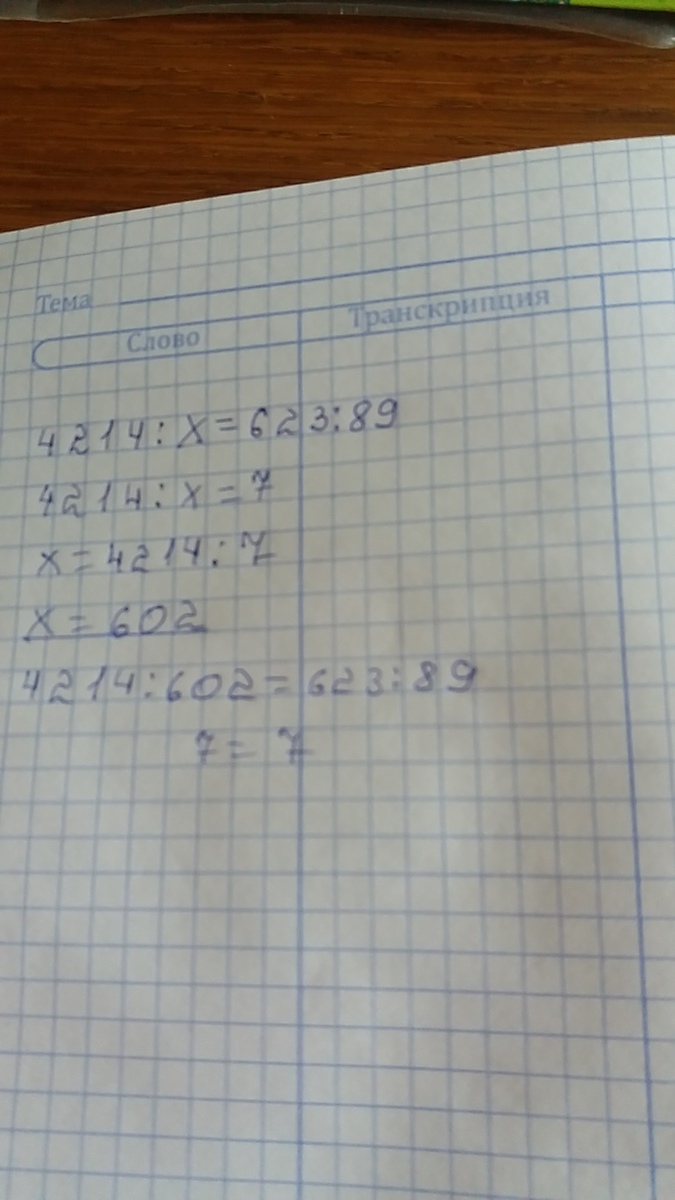 Тема
Слово Транскрипция
4214:x=623:89
4214:x=7
x=4214:7
x=602
4214:602=623:89
7=7